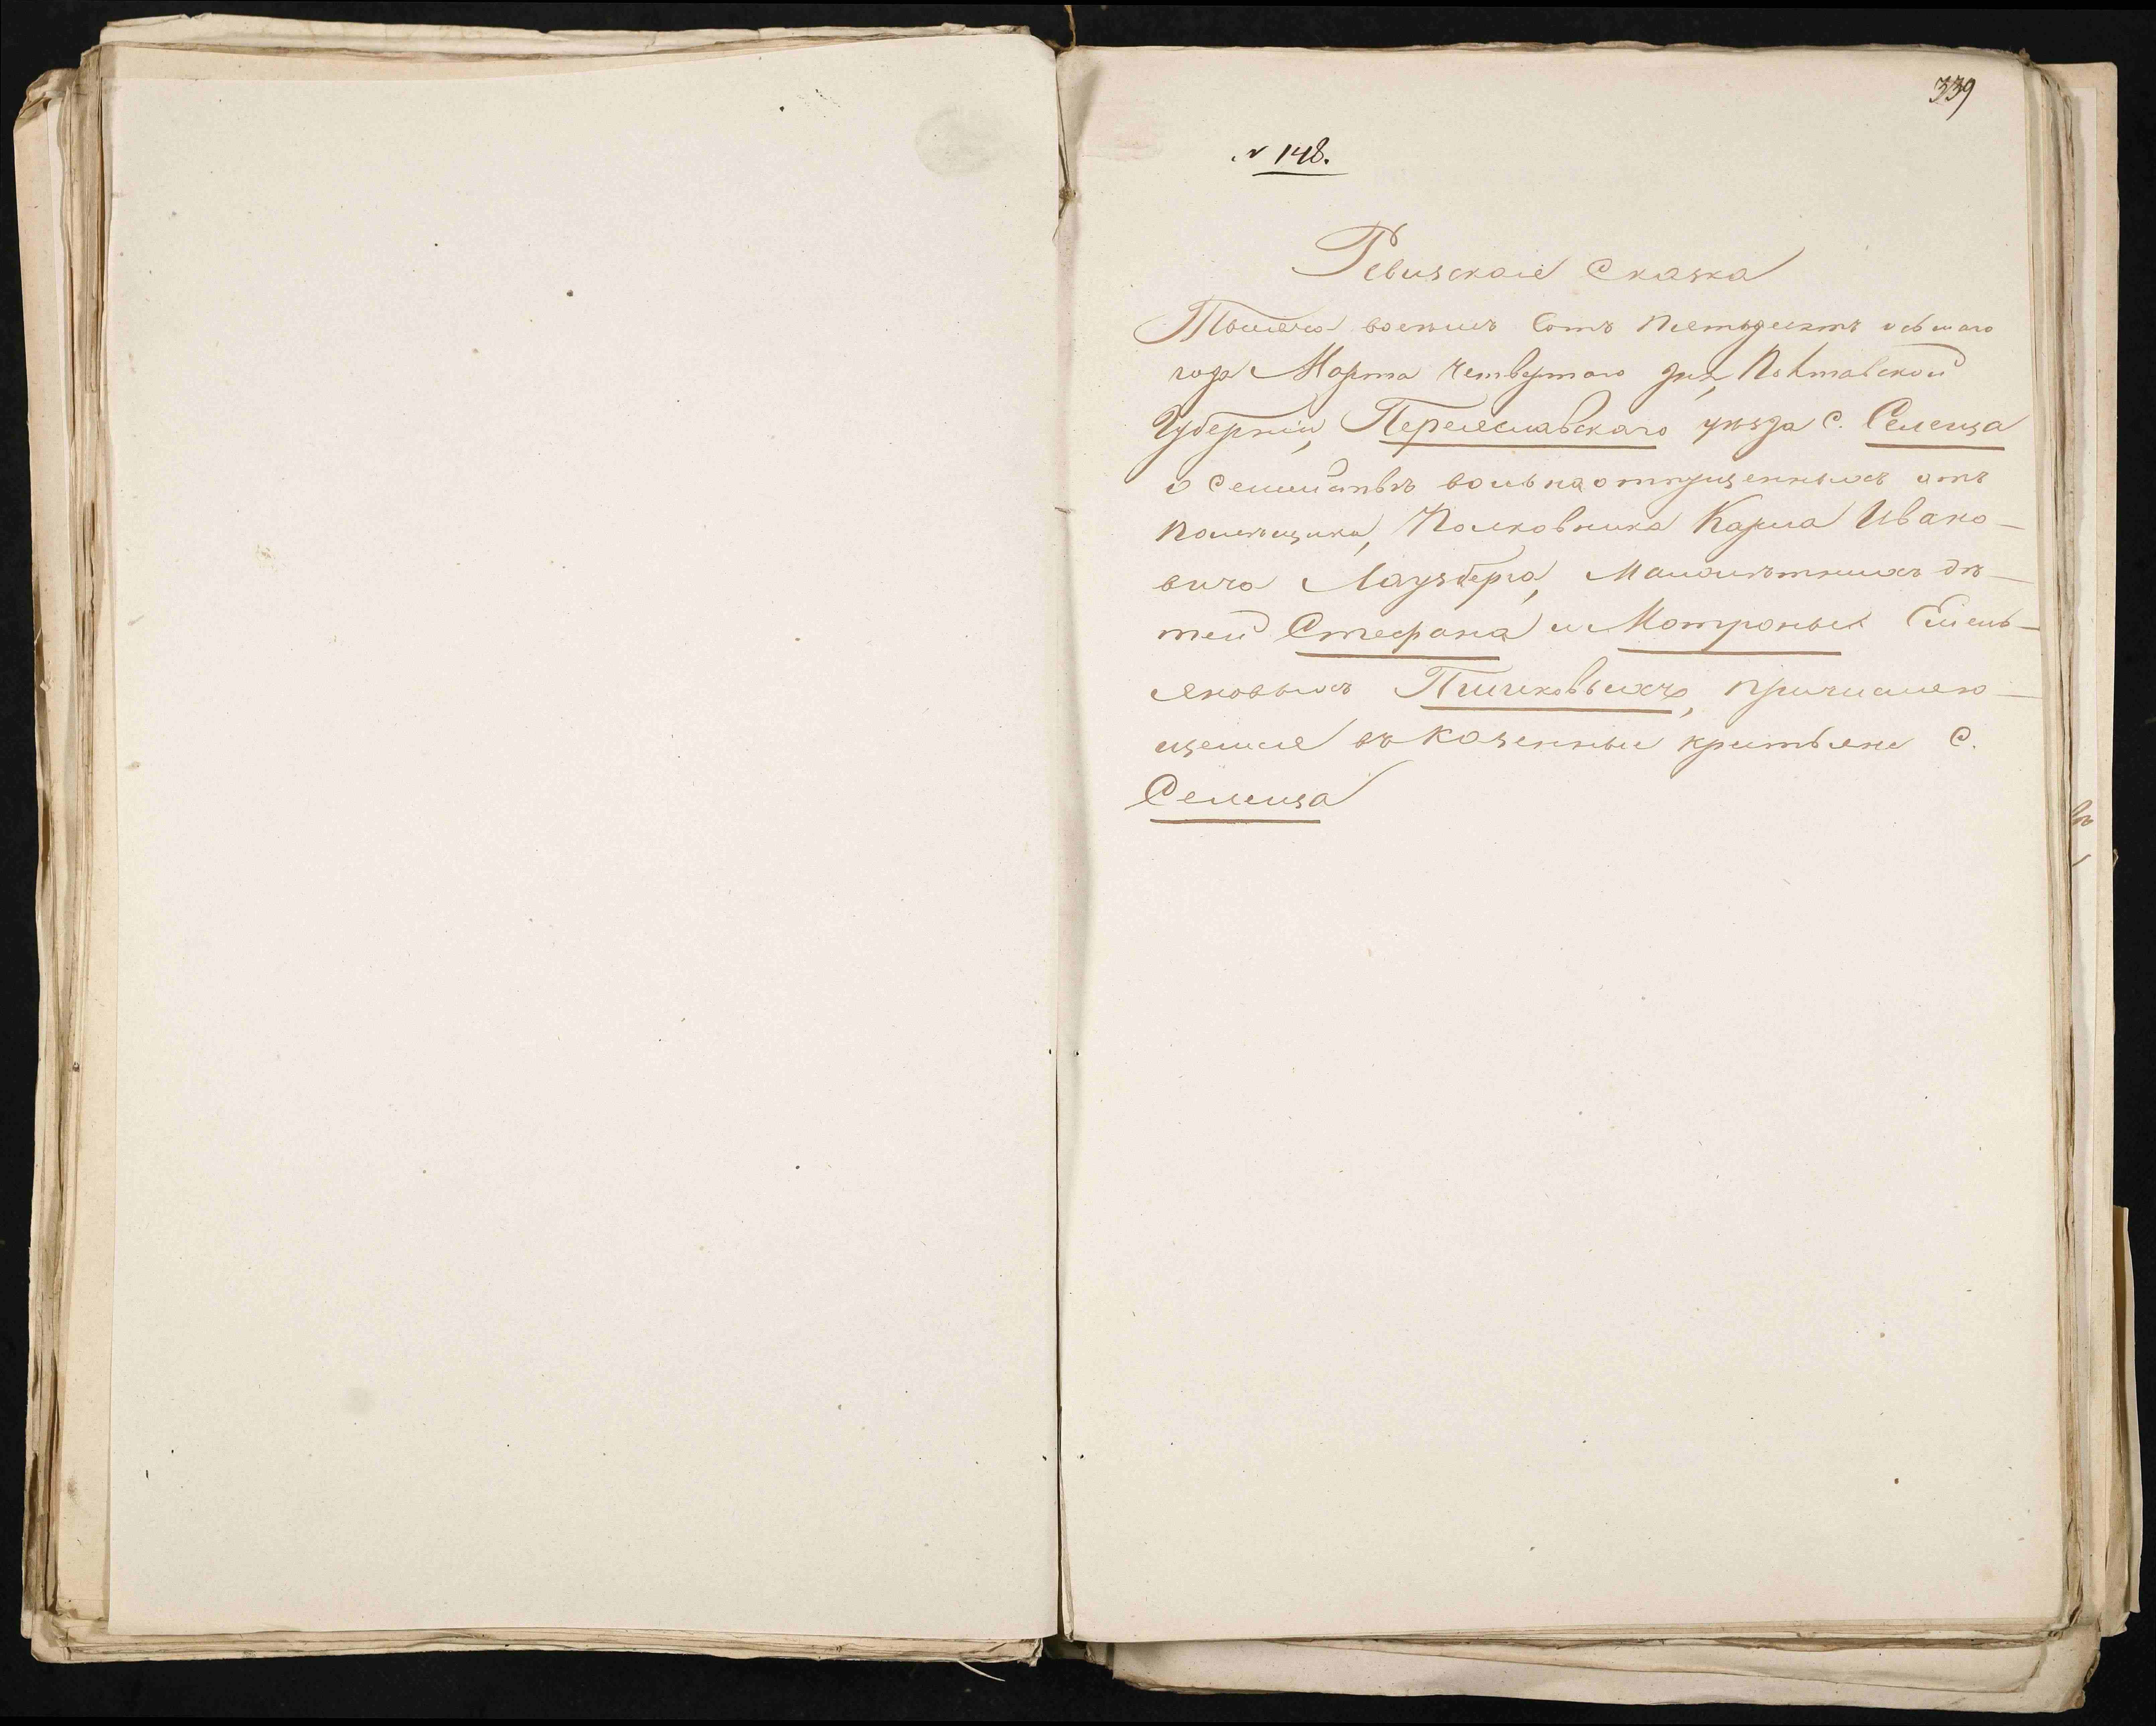 339
№ 148.
Ревизскаiе Сказка
Тысяча восемъ Сотъ Пятьдесятъ осьмаго
года Марта Четвертаго дня, Полтавской
Губернiи, Переяславскаго уѣзда С. Селища
о Семиствѣ вольнаотпущенныхъ отъ
Помѣщика, Полковника Карла Ивано-
вича Лаузберга, Малолѣтнихъ дѣ-
тей Стефана и Мотроны Емель-
яновыхъ причисляю-
щемся въ Казенныи крестьяне С.
Селища